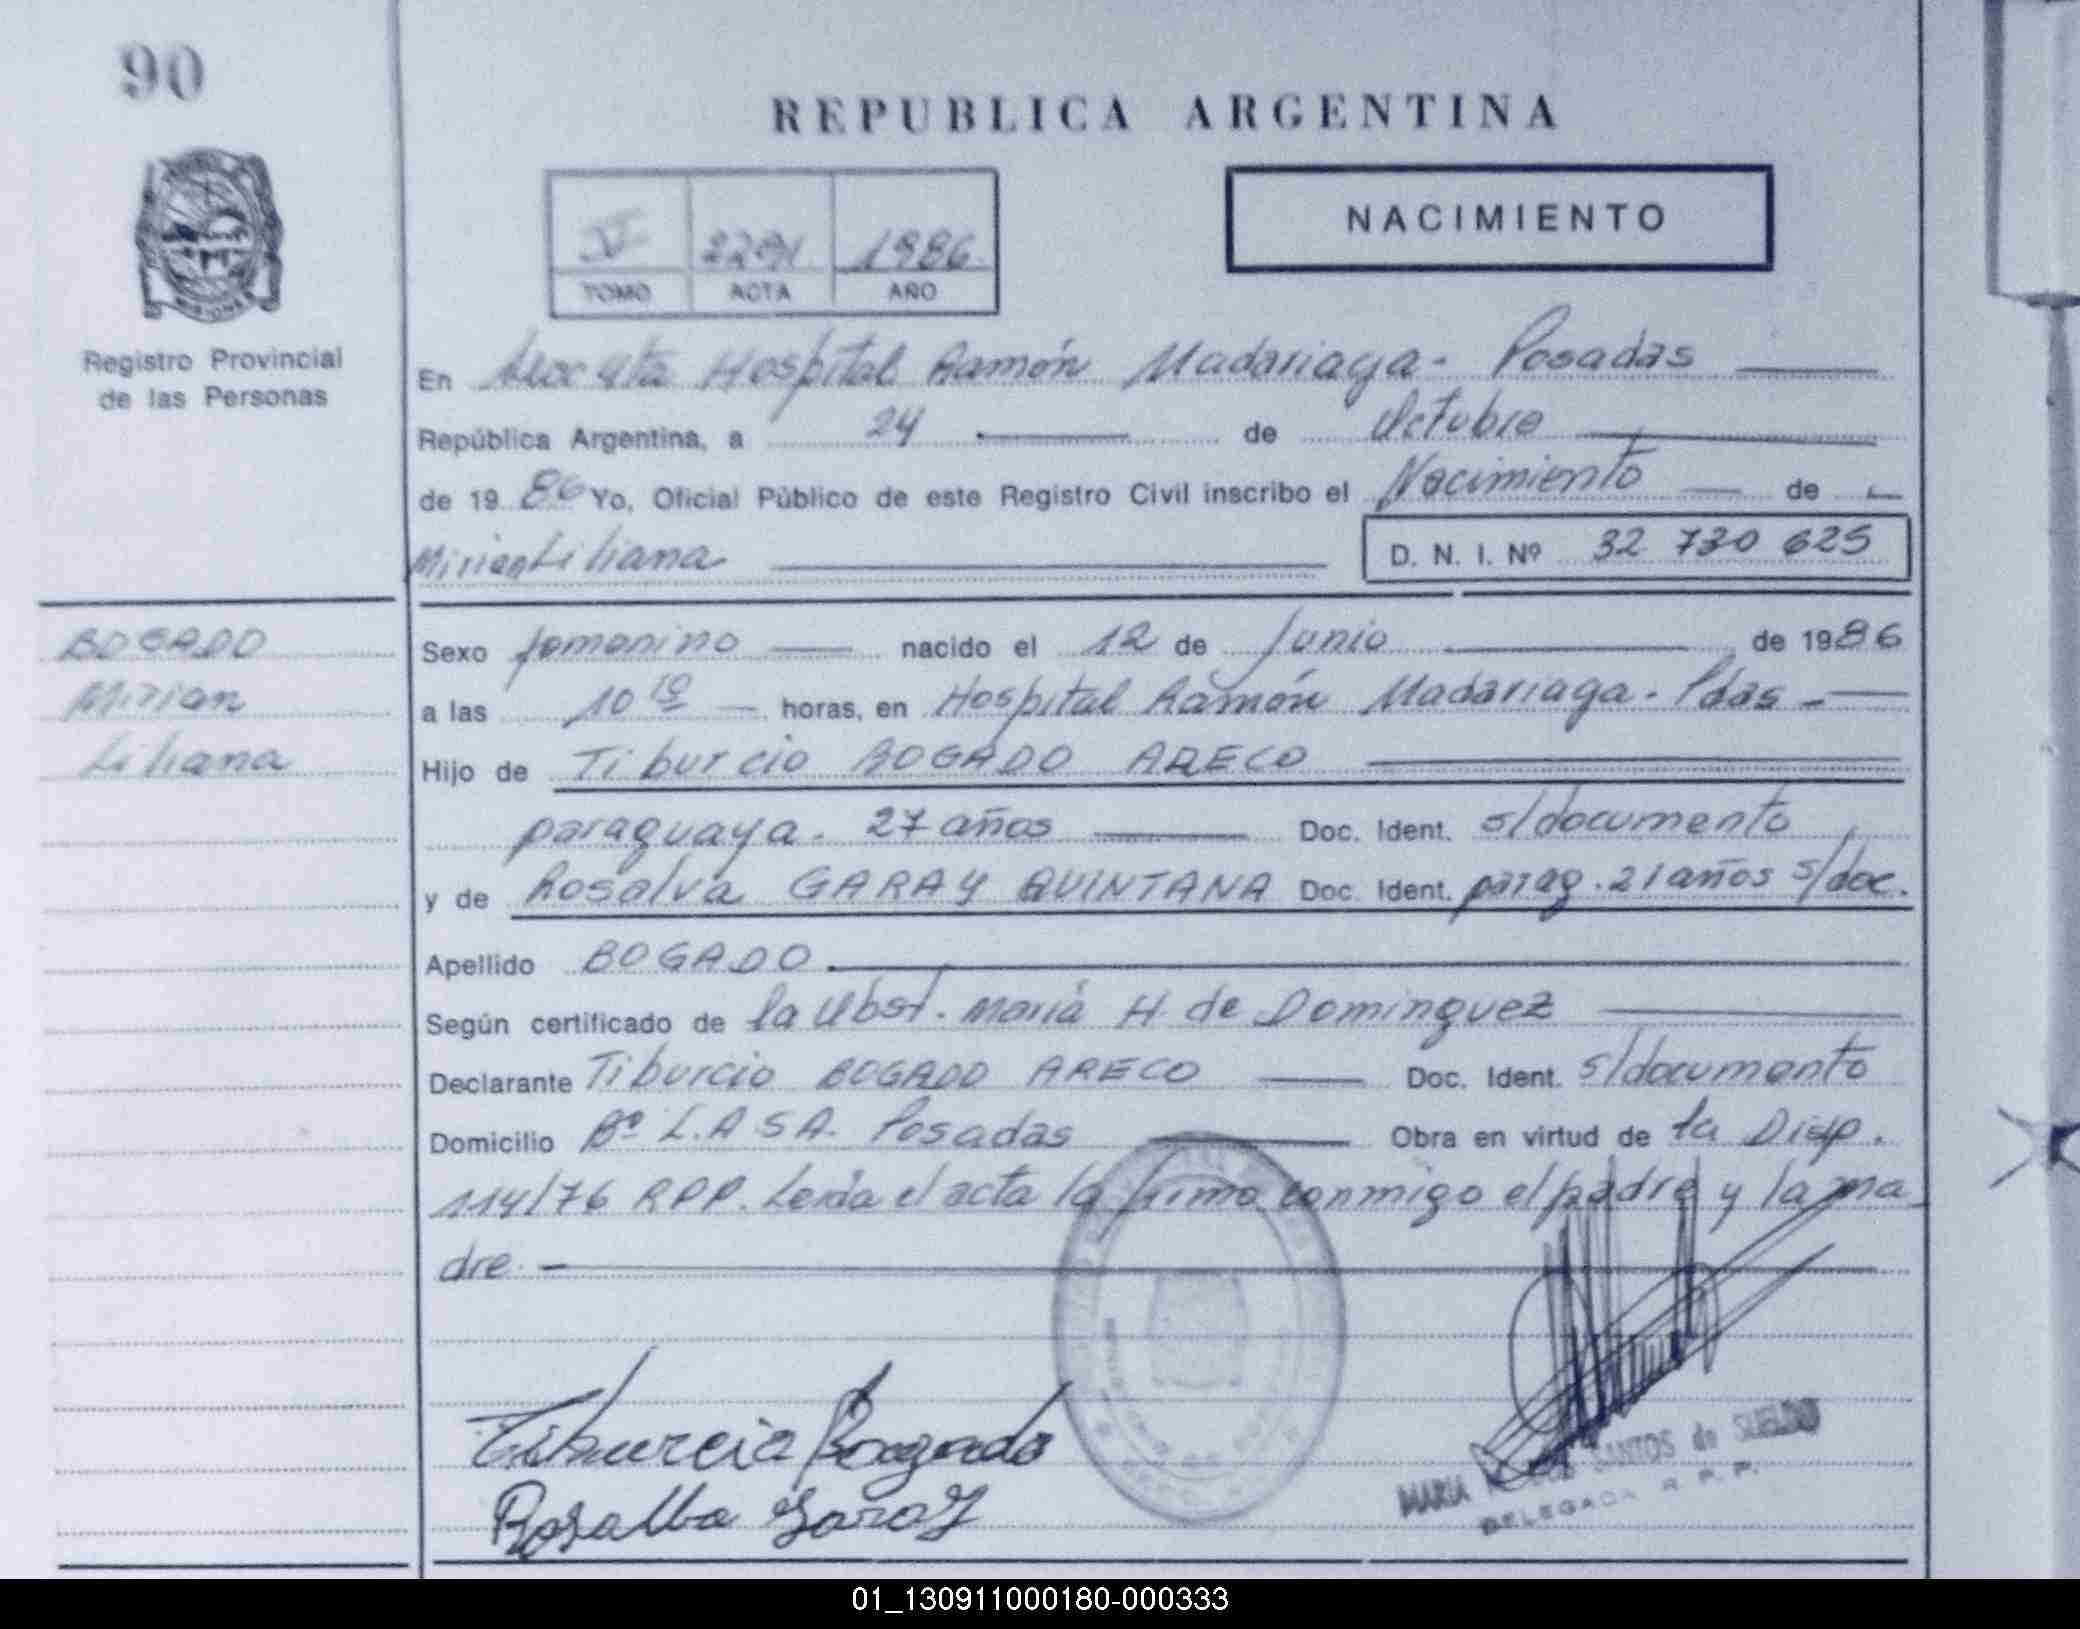 90
REPUBLICA ARGENTINA
NACIMIENTO
V 2291 1986
TOMO ACTA AÑO
Registro Provincial
de las Personas
En Hospital Ramón Madariaga - Posadas
República Argentina, a 24 de Octubre
de 1986 Yo, Oficial Público de este Registro Civil inscribo el Nacimiento de
Mirian Liliana D. N. I. Nº 32 730 625
BOGADO
Mirian
Liliana
Sexo femenino nacido el 12 de Junio de 1986
a las 10 10 horas, en Hospital Ramón Madariaga - Pdas -
Hijo de Tiburcio BOGADO ARECO
paraguaya - 27 años Doc. Ident. s/documento
y de Rosalva GARAY QUINTANA Doc. Ident. parag. 21 años s/doc.
Apellido BOGADO
Según certificado de la Obst. María H. de Dominguez
Declarante Tiburcio BOGADO ARECO Doc. Ident. s/documento
Domicilio Bº L.A S A. Posadas Obra en virtud de la Disp.
114/76 RPP. Leída el acta la firma conmigo el padre y la ma
dre.
Tiburcio Bogado
Rosalba Garay
MARIA SANTOS de SUELDO
DELEGADA R. P. P.
01_130911000180-000333